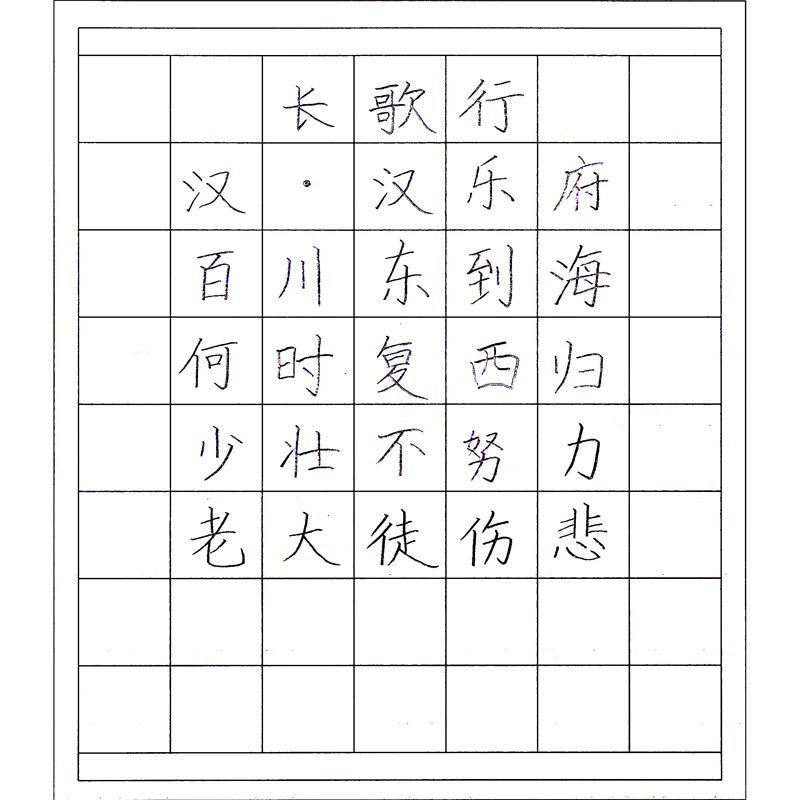 长歌行
汉·汉乐府
百川东到海
何时复西归
少壮不努力
老大徒伤悲